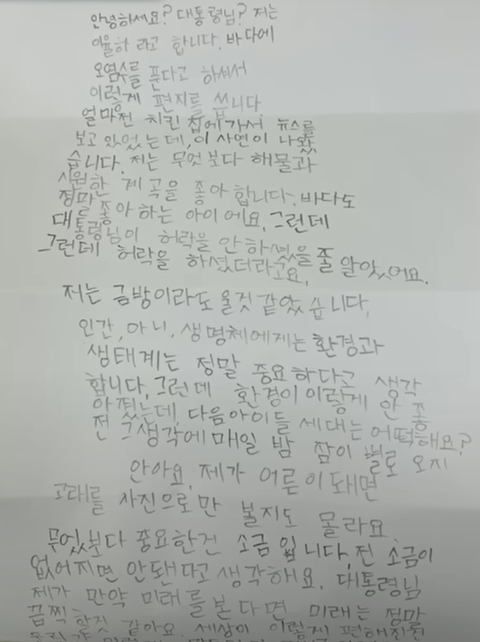 안녕하세요? 대통령님? 저는
이율하 라고 합니다. 바다에
오염수를 푼다고 하셔서
이렇게 편지를 씁니다
얼마전 치킨 집에가서 뉴스를
보고 있었는데, 이 사연이 나왔
습니다. 저는 무엇보다 해물과
시원한 계곡을 좋아합니다. 바다도
정말 좋아하는 아이에요. 그런데
대통령님이 허락을 안하셨을줄 알았어요.
그런데 허락을 하셨더라고요,
저는 금방이라도 울것 같았습니다,
인간, 아니. 생명체에게는 환경과
생태계는 정말 중요하다고 생각
합니다, 그런데 환경이 이렇게 안 좋
아졌는데, 다음아이들 세대는 어떡해요?
전 그생각에 매일 밤 잠이 별로 오지
안아요. 제가 어른이 돼면
고래를 사진으로만 볼지도 몰라요.
무엇보다 중요한건 소금 입니다, 전 소금이
없어지면 안돼다고 생각해요. 대통령님
제가 만약 미래를본다면 미래는 정말
끔찍 할것 같아요. 세상이 이렇게